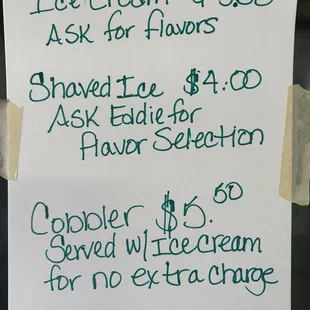 Ice Cream
ASK for flavors
Shaved Ice $4.00
ASK Eddie for
flavor Selection
Cobbler $5.50
Served w/ Ice cream
for no extra charge